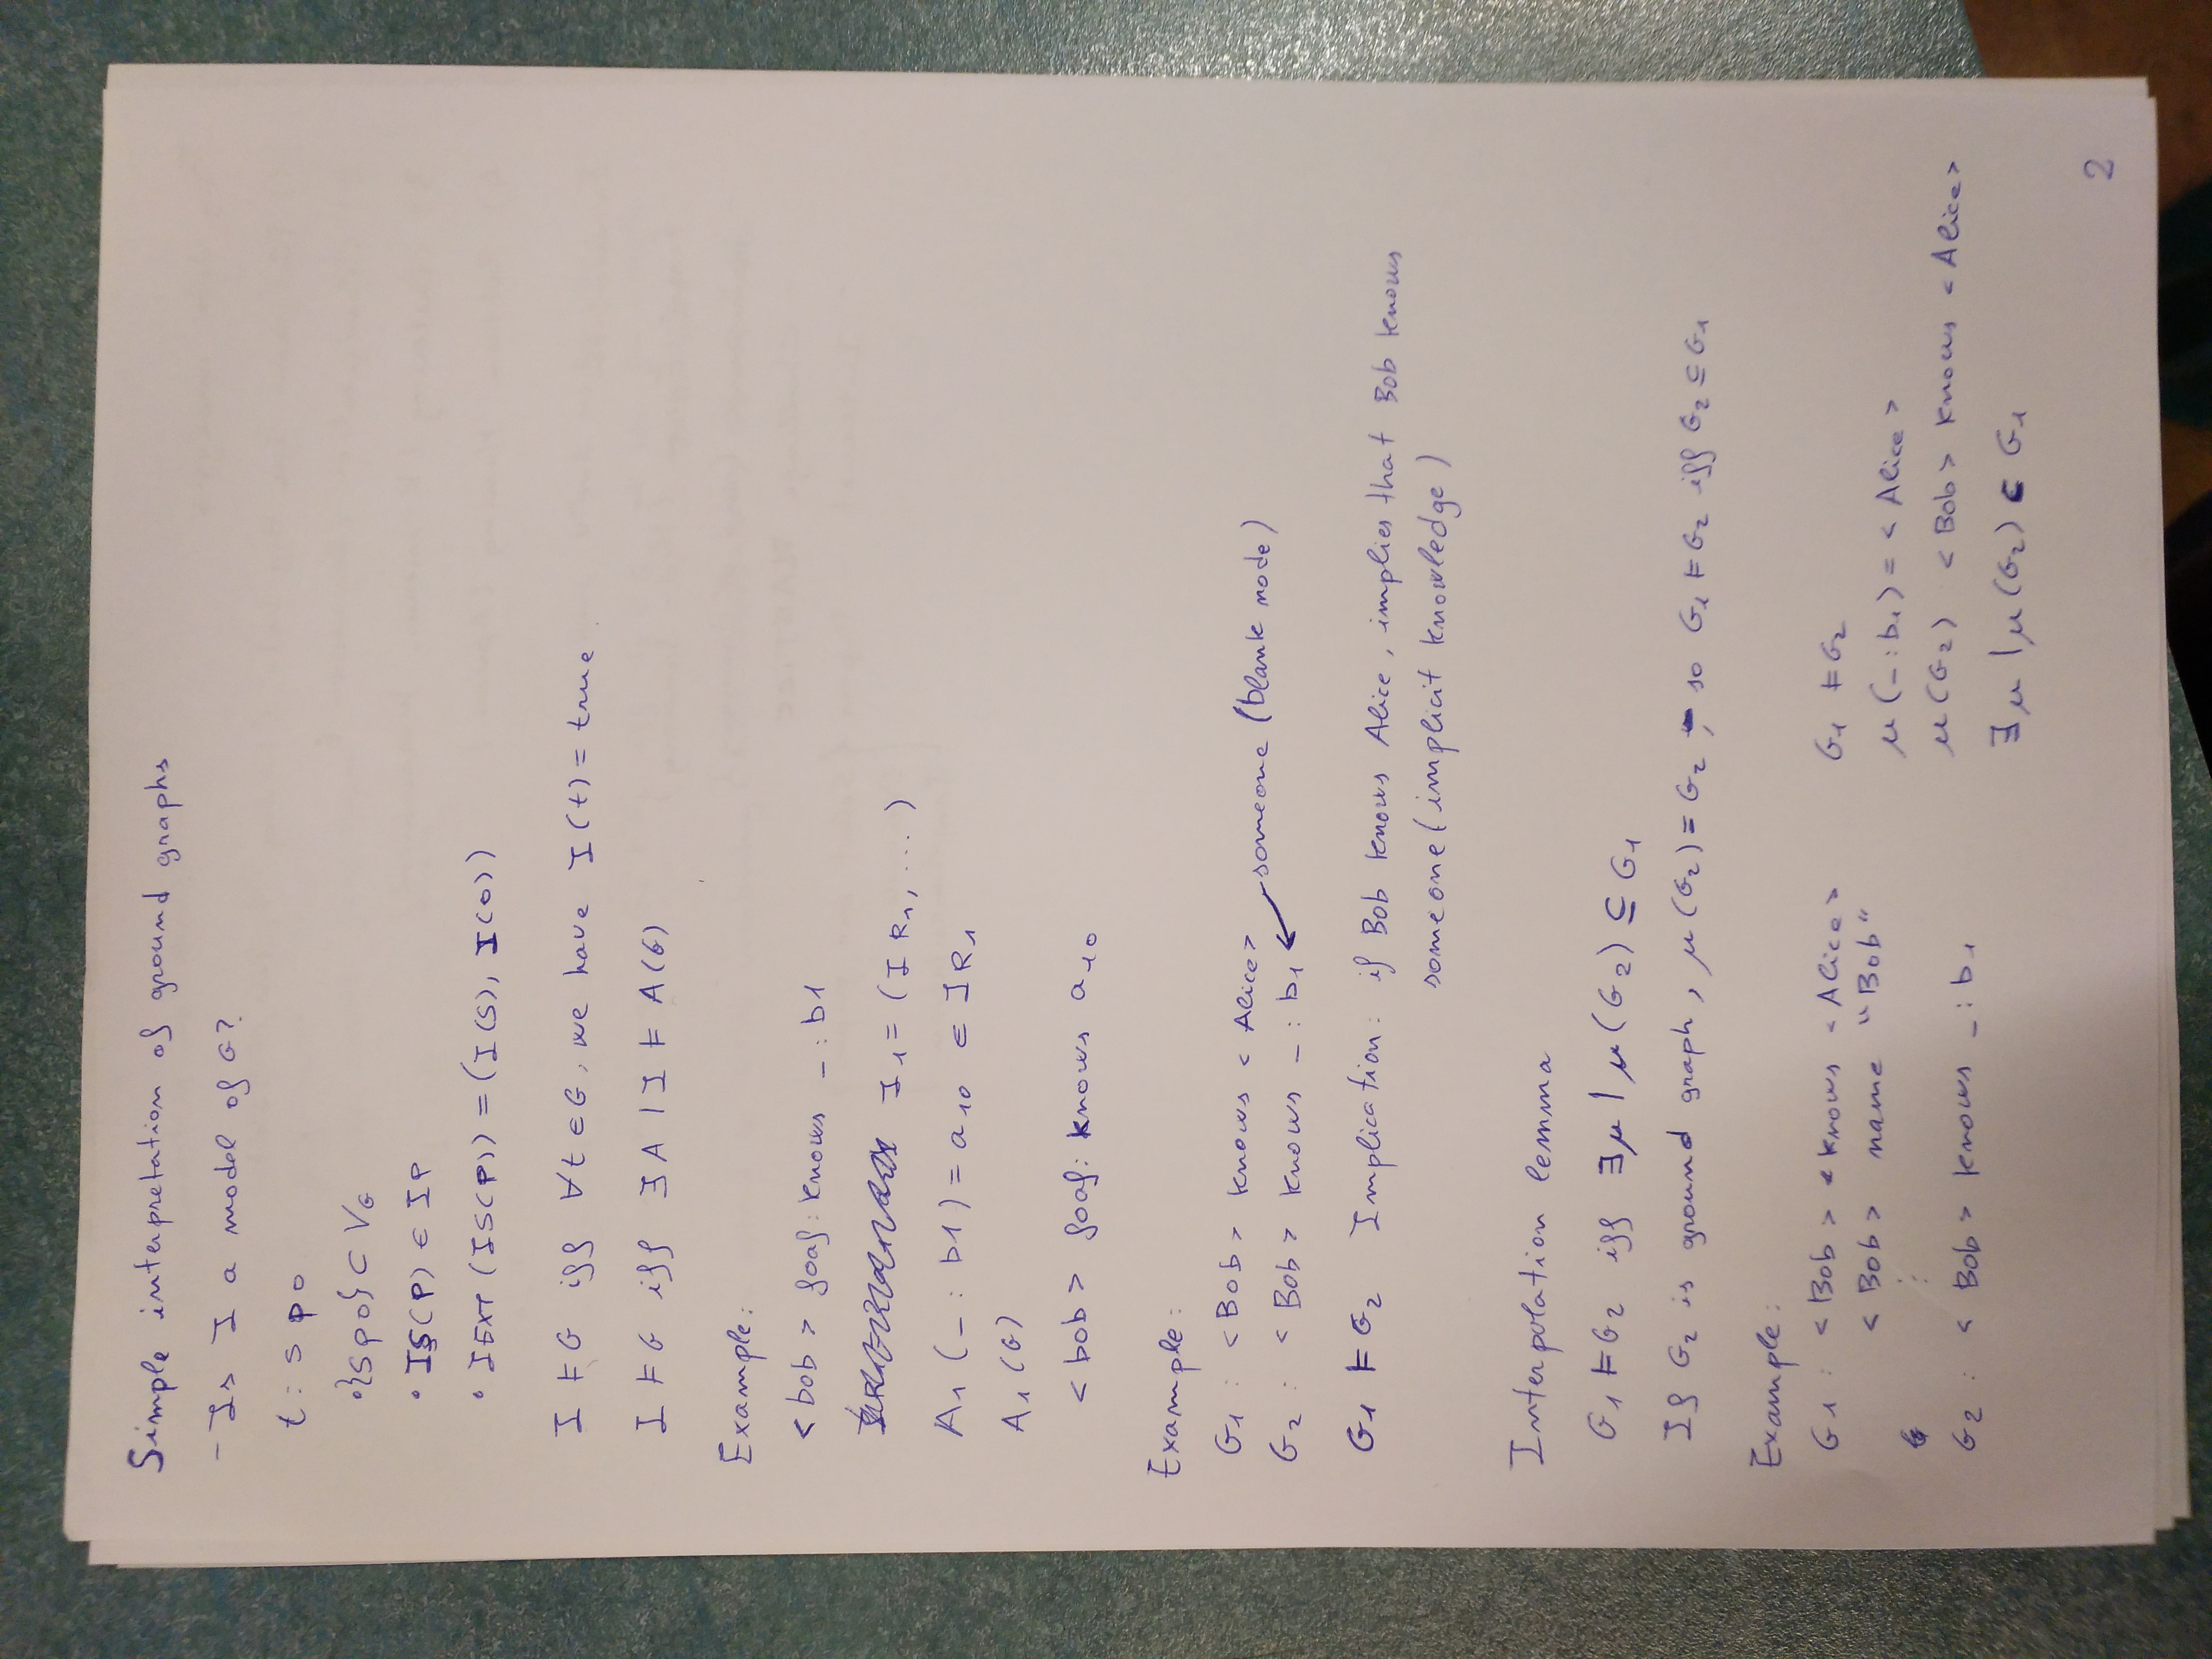 Simple interpretation of ground graphs
- Is I a model of G?
t: s p o
• {s p o} ⊂ V_G
• IS(P) ∈ IP
• IEXT (IS(P)) = (I(S), I(O))
I ⊨ G iff ∀t ∈ G, we have I(t) = true
I ⊨ G iff ∃A | I ⊨ A(G)
Example:
<bob> foaf: knows _:b1
I₁ = (IR₁, ...)
A₁ (_: b1) = a₁₀ ∈ IR₁
A₁ (G)
<bob> foaf: knows a₁₀
Example:
G₁ : <Bob> knows <Alice>
someone (blank node)
G₂ : <Bob> knows _: b₁
G₁ ⊨ G₂ Implication: if Bob knows Alice, implies that Bob knows
someone (implicit knowledge)
Interpolation lemma
G₁ ⊨ G₂ iff ∃μ | μ(G₂) ⊆ G₁
If G₂ is ground graph, μ(G₂) = G₂, so G₁ ⊨ G₂ iff G₂ ⊆ G₁
Example:
G₁ : <Bob> knows <Alice>
<Bob> name "Bob"
⋮
G₂ : <Bob> knows _: b₁
G₁ ⊨ G₂
μ(_:b₁) = <Alice>
μ(G₂) <Bob> knows <Alice>
∃μ | μ(G₂) ⊂ G₁
2